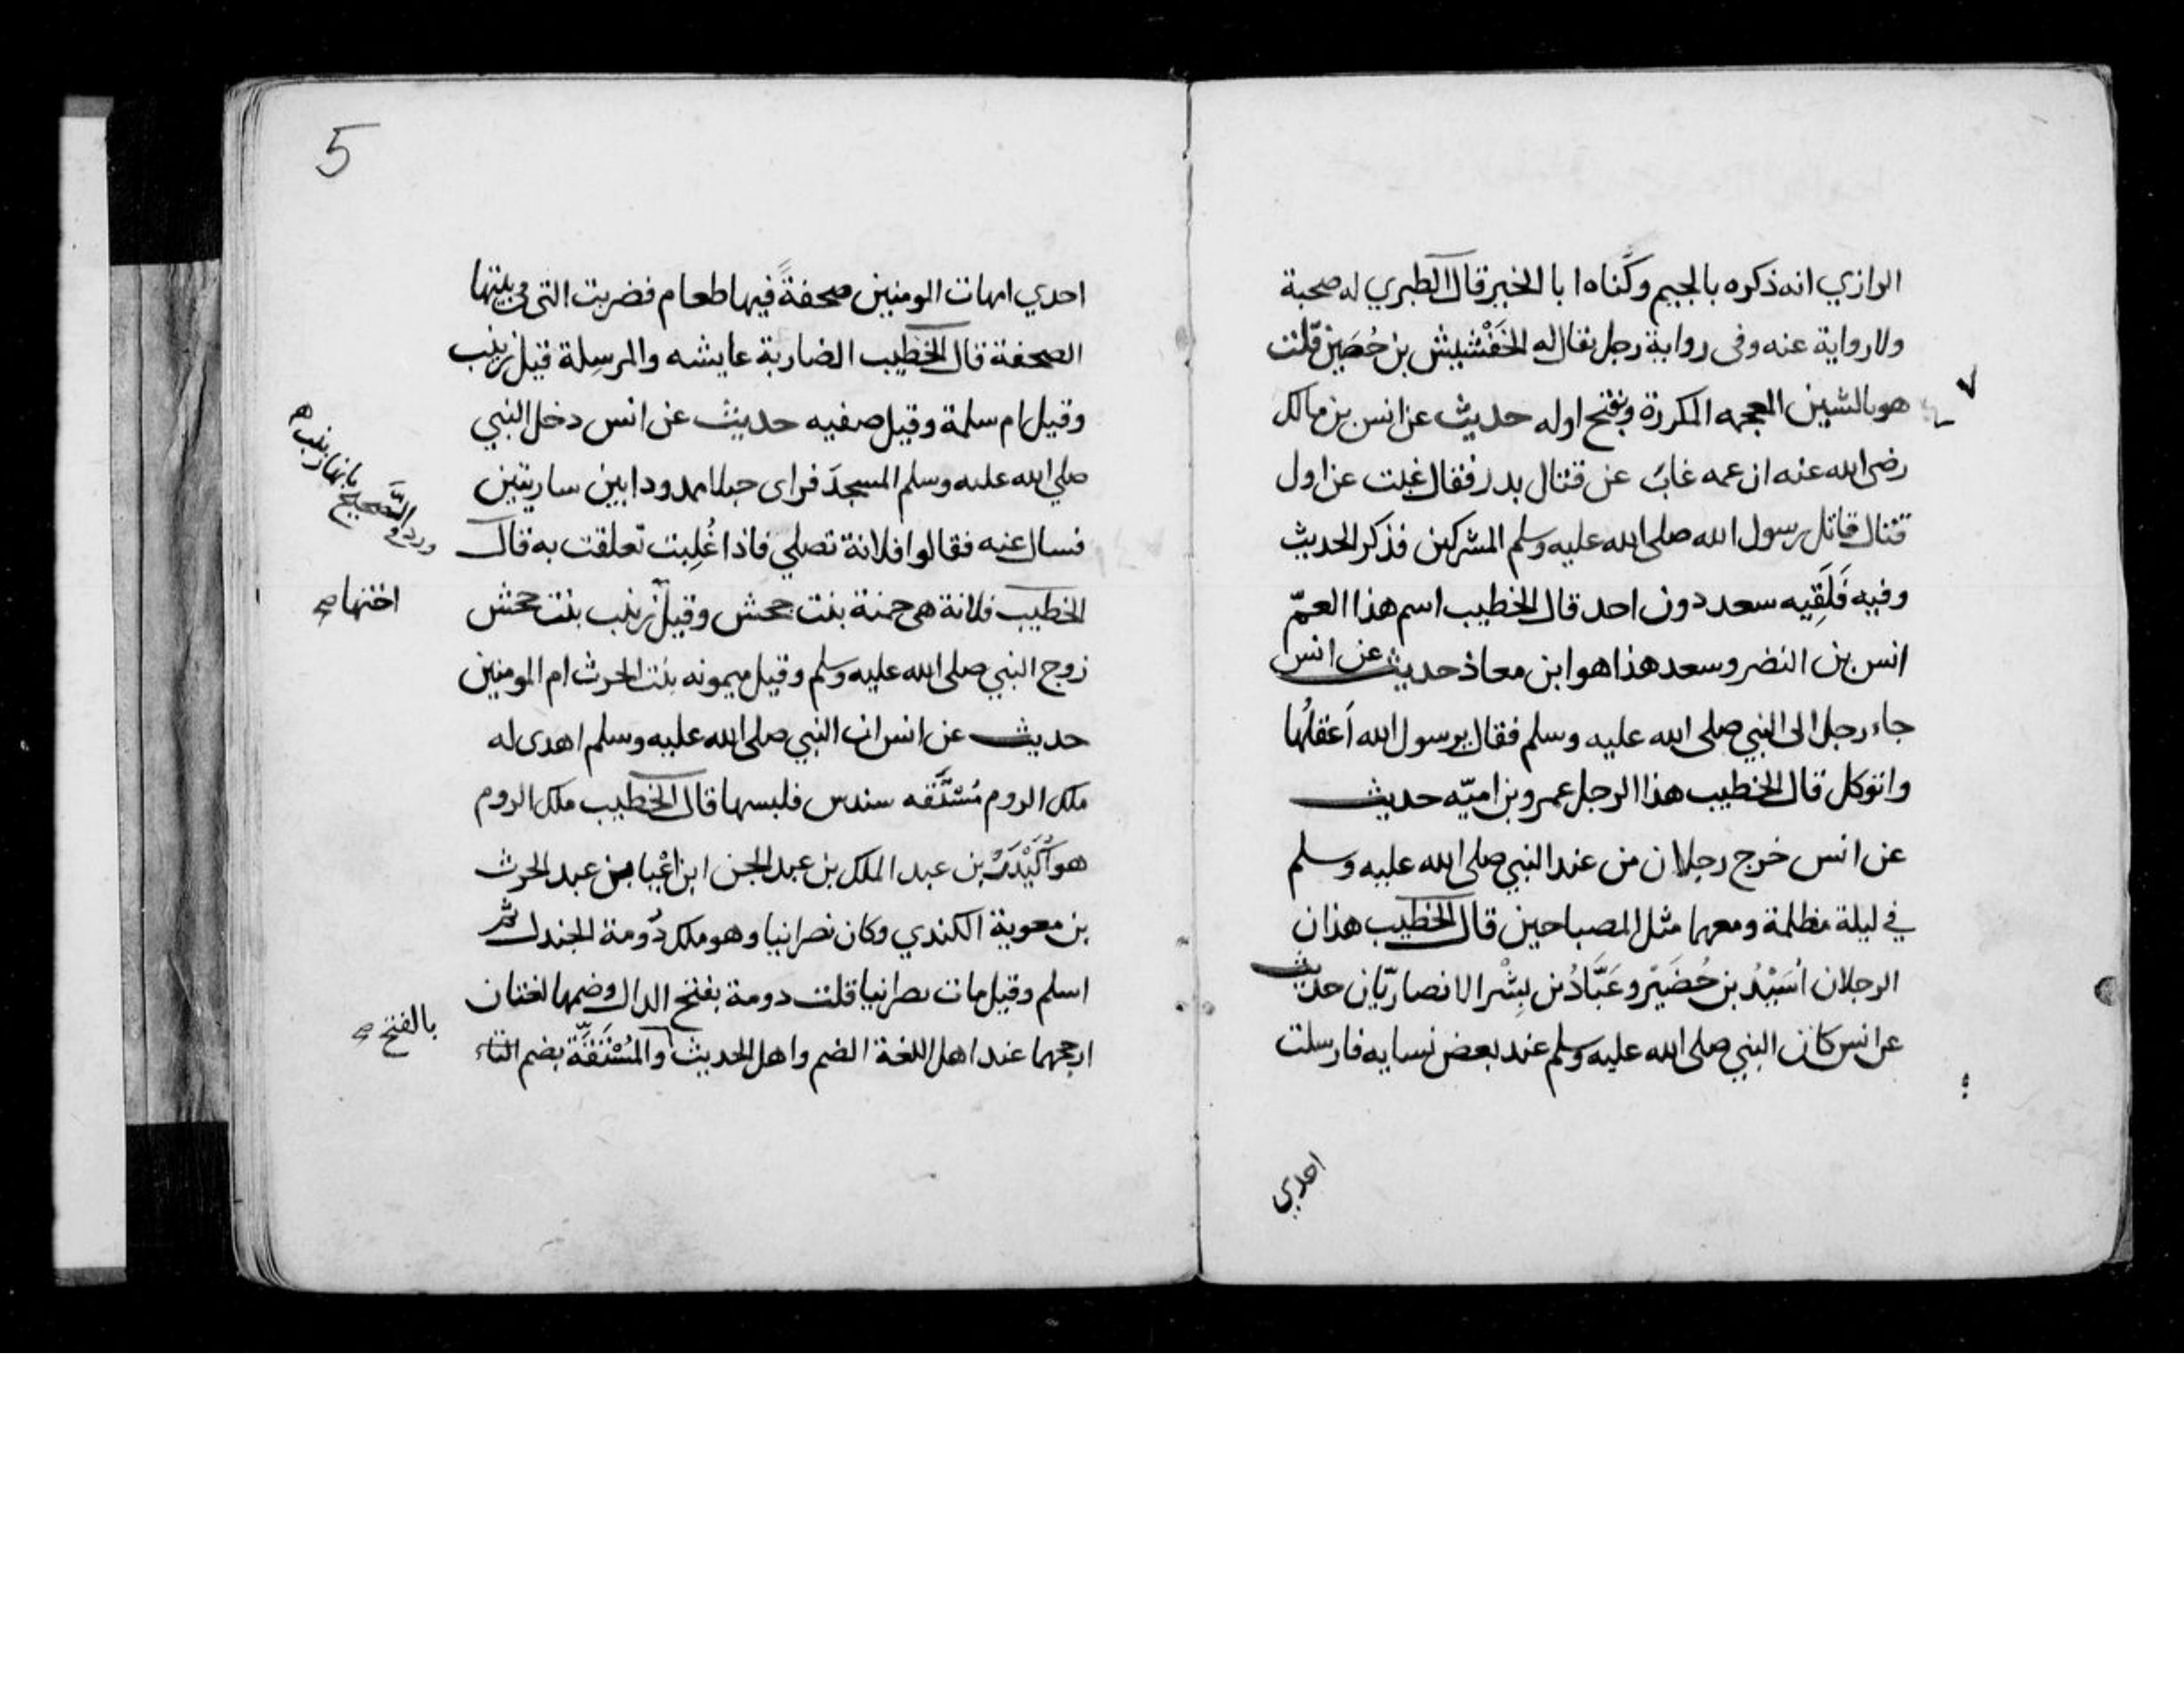 الرازي انه ذكره بالجيم وكناه ابا الخير قال الطبري له صحبة
ولا رواية عنه وفى رواية رجل يقال له الخَفْشيش بن حُصَين قلت
هو بالشين المعجمه المكررة وبفتح اوله حديث عن انس بن مالك
رضى الله عنه ان عمه غابَ عن قتال بدر فقال غبت عن اول
قتال قاتل رسول الله صلى الله عليه وسلم المشركين فذكر الحديث
وفيه فَلَقِيه سعد دون احد قال الخطيب اسم هذا العمّ
انس بن النضر وسعد هذا هو ابن معاذ حديث عن انس
جاء رجل الى النبي صلى الله عليه وسلم فقال يرسول الله اَعقلُها
واتوكل قال الخطيب هذا الرجل عمرو بن اميّه حديث
عن انس خرج رجلان من عند النبي صلى الله عليه وسلم
في ليلة مظلمة ومعهما مثل المصباحين قال الخطيب هذان
الرجلان اُسَيْدُ بن حُضَيْر وعَبَّادُ بن بِشْر الانصاريّان حديث
عن انس كان النبي صلى الله عليه وسلم عند بعض نسايه فارسلت
احدي
5
احدي امهات المومنين صحفةً فيها طعام فضربت التى فى بيتها
الصحفة قال الخطيب الضاربة عايشه والمرسِلة قيل زينب
وقيل ام سلمة وقيل صفيه حديث عن انس دخل النبي
صلي الله عليه وسلم المسجدَ فراى حبلا ممدودا بين ساريتين
فسال عنه فقالوا فلانة تصلي فاذا غُلِبت تعلقت به قال
الخطيب فلانة هى حمنة بنت جحش وقيل زينب بنت جحش
زوج النبي صلى الله عليه وسلم وقيل ميمونه بنت الحرث ام المومنين
حديث عن انس ان النبي صلى الله عليه وسلم اهدى له
ملك الروم مُسْتُقه سندس فلبسها قال الخطيب ملك الروم
هو اُكَيْدَرُ بن عبد الملك بن عبد الجن ابن اعْيا بن عبد الحرث
بن معوية الكندي وكان نصرانيا وهو ملك دُومة الجندل ثم
اسلم وقيل مات نصرانيا قلت دومة بفتح الدال وضمها لغتان
ارجحهما عند اهل اللغة الضم واهل الحديث والمُسْتُقَة بضم التاء
ورد فى الصَّحيح بانها زينب
اختها صح
بالفتح صح